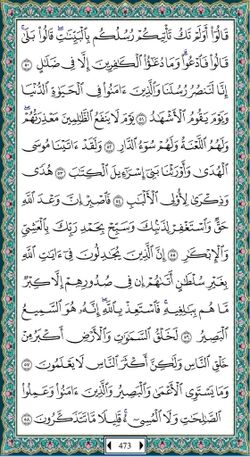 قَالُوٓا۟ أَوَلَمْ تَكُ تَأْتِيكُمْ رُسُلُكُم بِٱلْبَيِّنَـٰتِ ۖ قَالُوا۟ بَلَىٰ ۚ
قَالُوا۟ فَٱدْعُوا۟ ۗ وَمَا دُعَـٰٓؤُا۟ ٱلْكَـٰفِرِينَ إِلَّا فِى ضَلَـٰلٍ ٥٠
إِنَّا لَنَنصُرُ رُسُلَنَا وَٱلَّذِينَ ءَامَنُوا۟ فِى ٱلْحَيَوٰةِ ٱلدُّنْيَا
وَيَوْمَ يَقُومُ ٱلْأَشْهَـٰدُ ٥١ يَوْمَ لَا يَنفَعُ ٱلظَّـٰلِمِينَ مَعْذِرَتُهُمْ ۖ
وَلَهُمُ ٱللَّعْنَةُ وَلَهُمْ سُوٓءُ ٱلدَّارِ ٥٢ وَلَقَدْ ءَاتَيْنَا مُوسَى
ٱلْهُدَىٰ وَأَوْرَثْنَا بَنِىٓ إِسْرَٰٓءِيلَ ٱلْكِتَـٰبَ ٥٣ هُدًى
وَذِكْرَىٰ لِأُو۟لِى ٱلْأَلْبَـٰبِ ٥٤ فَٱصْبِرْ إِنَّ وَعْدَ ٱللَّهِ
حَقٌّ وَٱسْتَغْفِرْ لِذَنۢبِكَ وَسَبِّحْ بِحَمْدِ رَبِّكَ بِٱلْعَشِىِّ
وَٱلْإِبْكَـٰرِ ٥٥ إِنَّ ٱلَّذِينَ يُجَـٰدِلُونَ فِىٓ ءَايَـٰتِ ٱللَّهِ
بِغَيْرِ سُلْطَـٰنٍ أَتَىٰهُمْ ۙ إِن فِى صُدُورِهِمْ إِلَّا كِبْرٌ
مَّا هُم بِبَـٰلِغِيهِ ۚ فَٱسْتَعِذْ بِٱللَّهِ ۖ إِنَّهُۥ هُوَ ٱلسَّمِيعُ
ٱلْبَصِيرُ ٥٦ لَخَلْقُ ٱلسَّمَـٰوَٰتِ وَٱلْأَرْضِ أَكْبَرُ مِنْ
خَلْقِ ٱلنَّاسِ وَلَـٰكِنَّ أَكْثَرَ ٱلنَّاسِ لَا يَعْلَمُونَ ٥٧
وَمَا يَسْتَوِى ٱلْأَعْمَىٰ وَٱلْبَصِيرُ وَٱلَّذِينَ ءَامَنُوا۟ وَعَمِلُوا۟
ٱلصَّـٰلِحَـٰتِ وَلَا ٱلْمُسِىٓءُ ۚ قَلِيلًا مَّا تَتَذَكَّرُونَ ٥٨
473